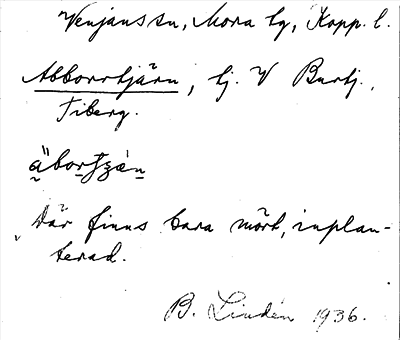 Venjans sn, Mora tg, Kopp. l.
Abborrtjärn, tj. V Burtj.,
Tiberg.
Där finns bara mört, inplan-
terad.
B. Lindén 1936.